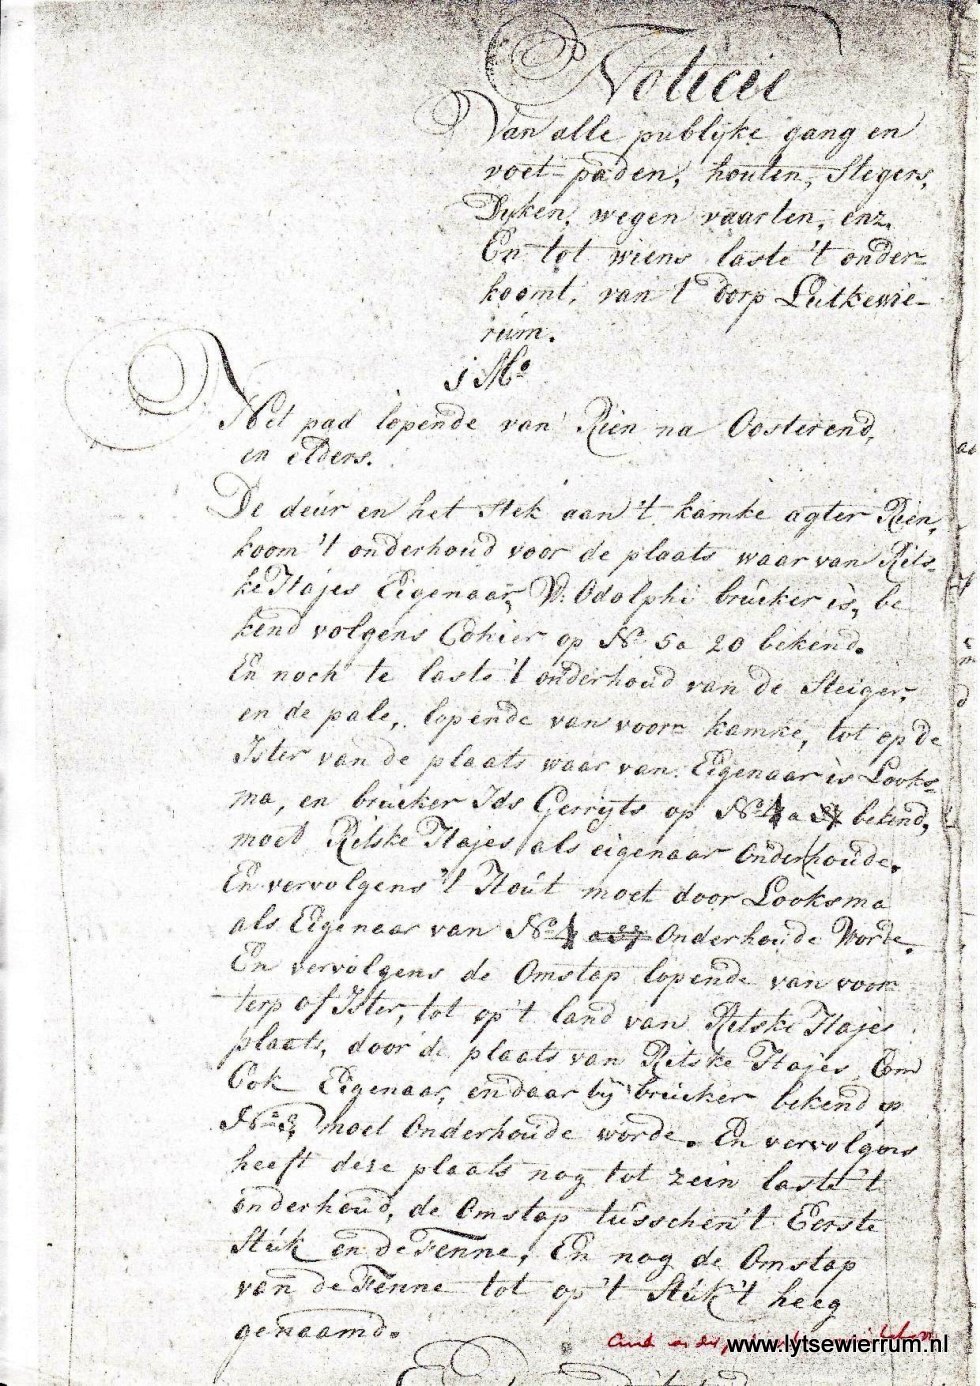 Noticie
Van alle publijke gang en
voet-paden, houten, Stegers,
Dyken, wegen vaarten, enz.
En tot wiens laste 't onder=
koomt, van 't dorp Lutkewie-
rum.
1 Mo
Het pad lopende van Rien na Oosterend,
en elders.
De deur en het stek aan 't kamke agter Rien,
koom 't onderhoud voor de plaats waar van Rits-
ke Hajes Eigenaar, W. Odolphi bruiker is, be
kend volgens Cohier op No 5 a 20 bekend.
En noch te laste 't onderhoud van de Steiger,
en de pale, lopende van voor= kamke, tot op de
Ister van de plaats waar van Eigenaar is Looks-
ma, en bruiker Ids Gerrijts op No 4 a bekend,
moet Ritske Hajes als eigenaar Onderhoude.
En vervolgens 't Hout moet door Looksma
als Eigenaar van No 4 Onderhoude Worde.
En vervolgens de Omstap lopende van voor=
terp of Ister, tot op 't land van Ritske Hajes
plaats, door de plaats van Ritske Hajes Com
Ook Eigenaar, en daar bij bruicker bekend op
No moet Onderhoude worde. En vervolgens
heeft deze plaats nog tot zein laste 't
onderhoud, de Omstap tusschen 't Eerste
Stuk en de Fenne, En nog de Omstap
van de Fenne tot op 't Stuk 't heeg
genaamd.
www.lytsewierrum.nl